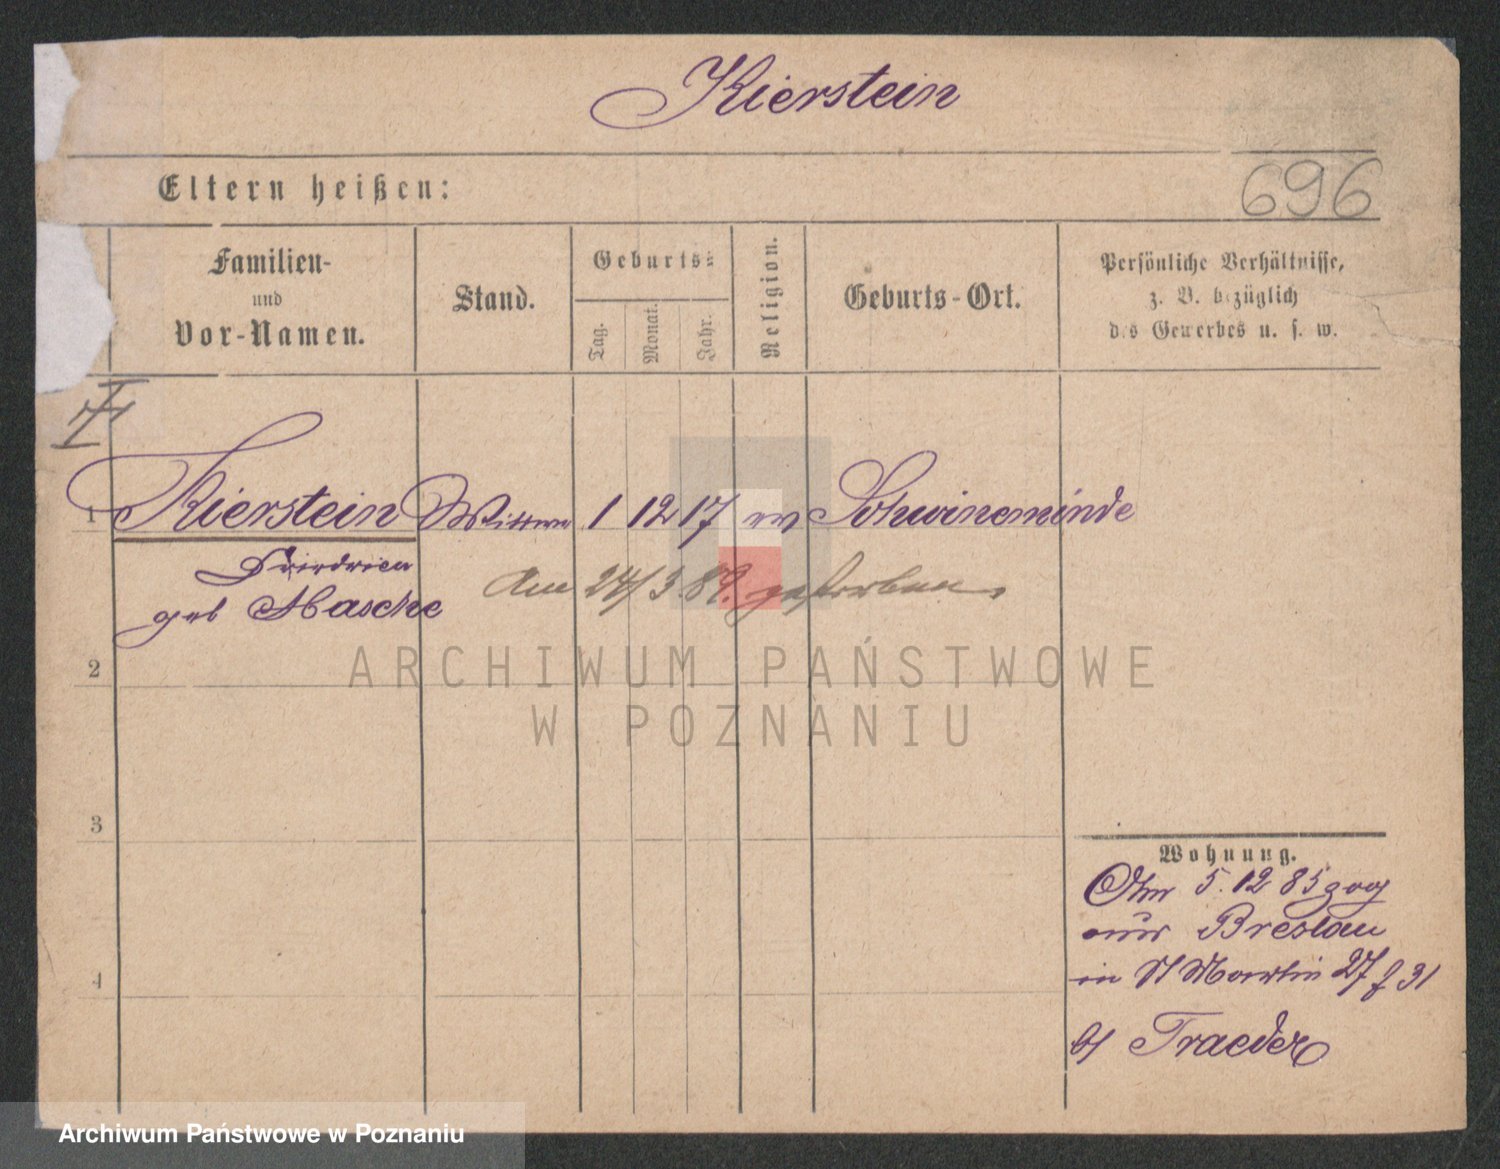 Kierstein
696
Eltern heißen:
Familien-
und
Vor-Namen.
Stand.
Geburts-
Tag.
Monat.
Jahr.
Religion.
Geburts-Ort.
Persönliche Verhältnisse,
z. B. bezüglich
des Gewerbes u. s. w.
1 Kierstein Wittwe 1 12 17 ev Schwinemünde
Friedrien
geb Hasche
Am 24/3.87. gestorben.
2
3
4
Wohnung.
Am 5. 12 85 zog
aus Breslau
in St Martin 27 f 31
b/ Traeder
ARCHIWUM PAŃSTWOWE
W POZNANIU
Archiwum Państwowe w Poznaniu